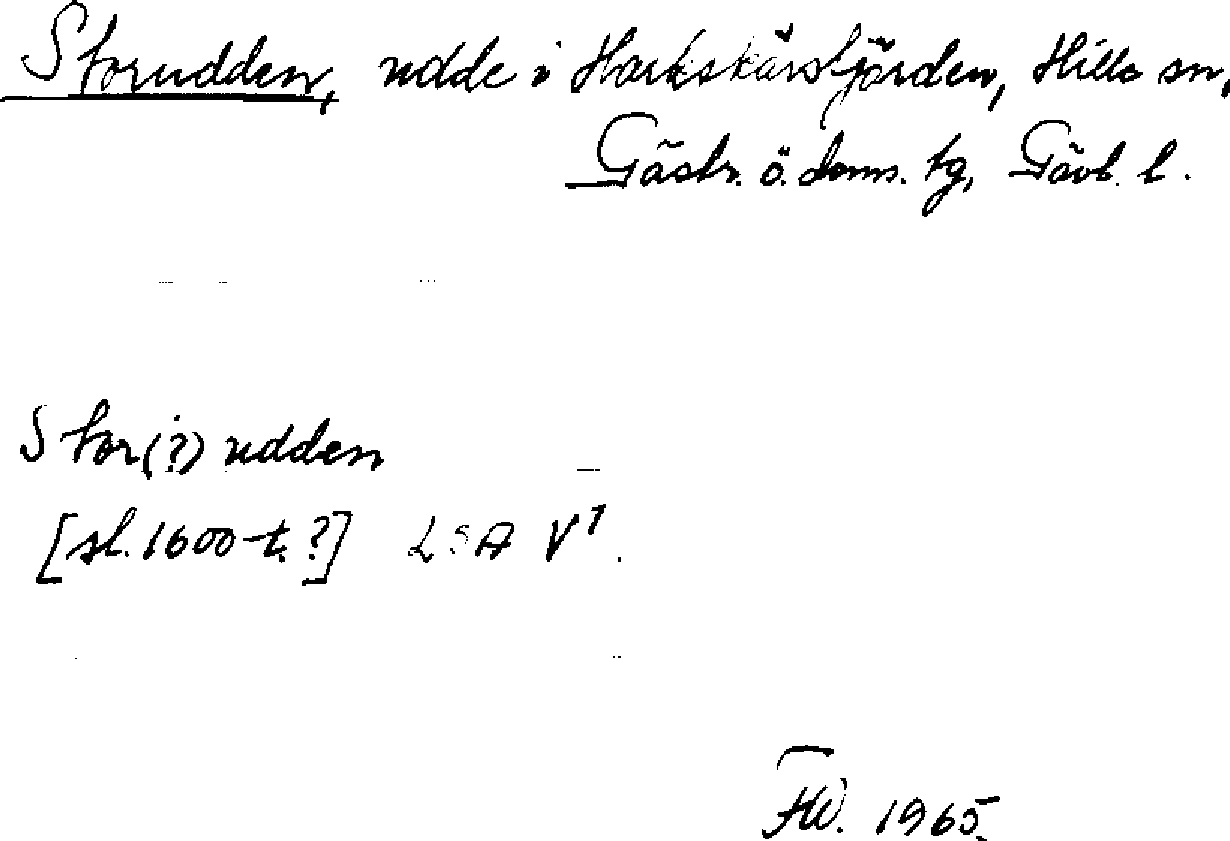 Storudden, udde i Harkskärsfjärden, Hille sn,
Gästr. ö. doms. tg, Gävl. l.
Stor(?)udden
[sl. 1600-t.?] LSA V¹.
FW. 1965.